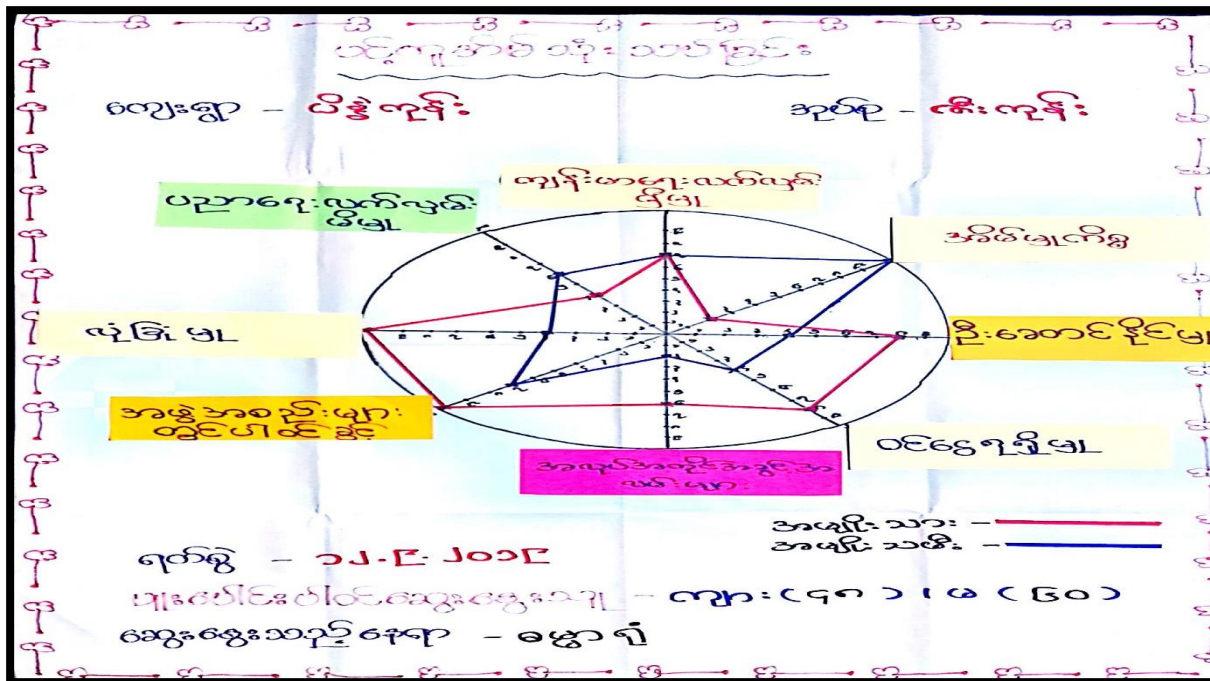 ပင့်ကူအိမ် သုံးသပ်ခြင်း
ကျေးရွာ - ပိန္နဲကုန်း
အုပ်စု - ဆီးကုန်း
ကျန်းမာရေးလက်လှမ်း
မှီမှု
ပညာရေးလက်လှမ်း
မီမှု
အိမ်မှုကိစ္စ
လုံခြုံမှု
ဦးဆောင်နိုင်မှု
အဖွဲ့အစည်းများ
တွင်ပါဝင်ခွင့်
ဝင်ငွေရရှိမှု
အလုပ်အကိုင်အခွင့်အ
လမ်းများ
အမျိုးသား -
အမျိုးသမီး -
ရက်စွဲ - ၁၂.၉.၂၀၁၉
ပူးပေါင်းပါဝင်ဆွေးနွေးသူ - ကျား(၄၈)၊ မ(၆၀)
ဆွေးနွေးသည့်နေရာ - ဓမ္မာရုံ